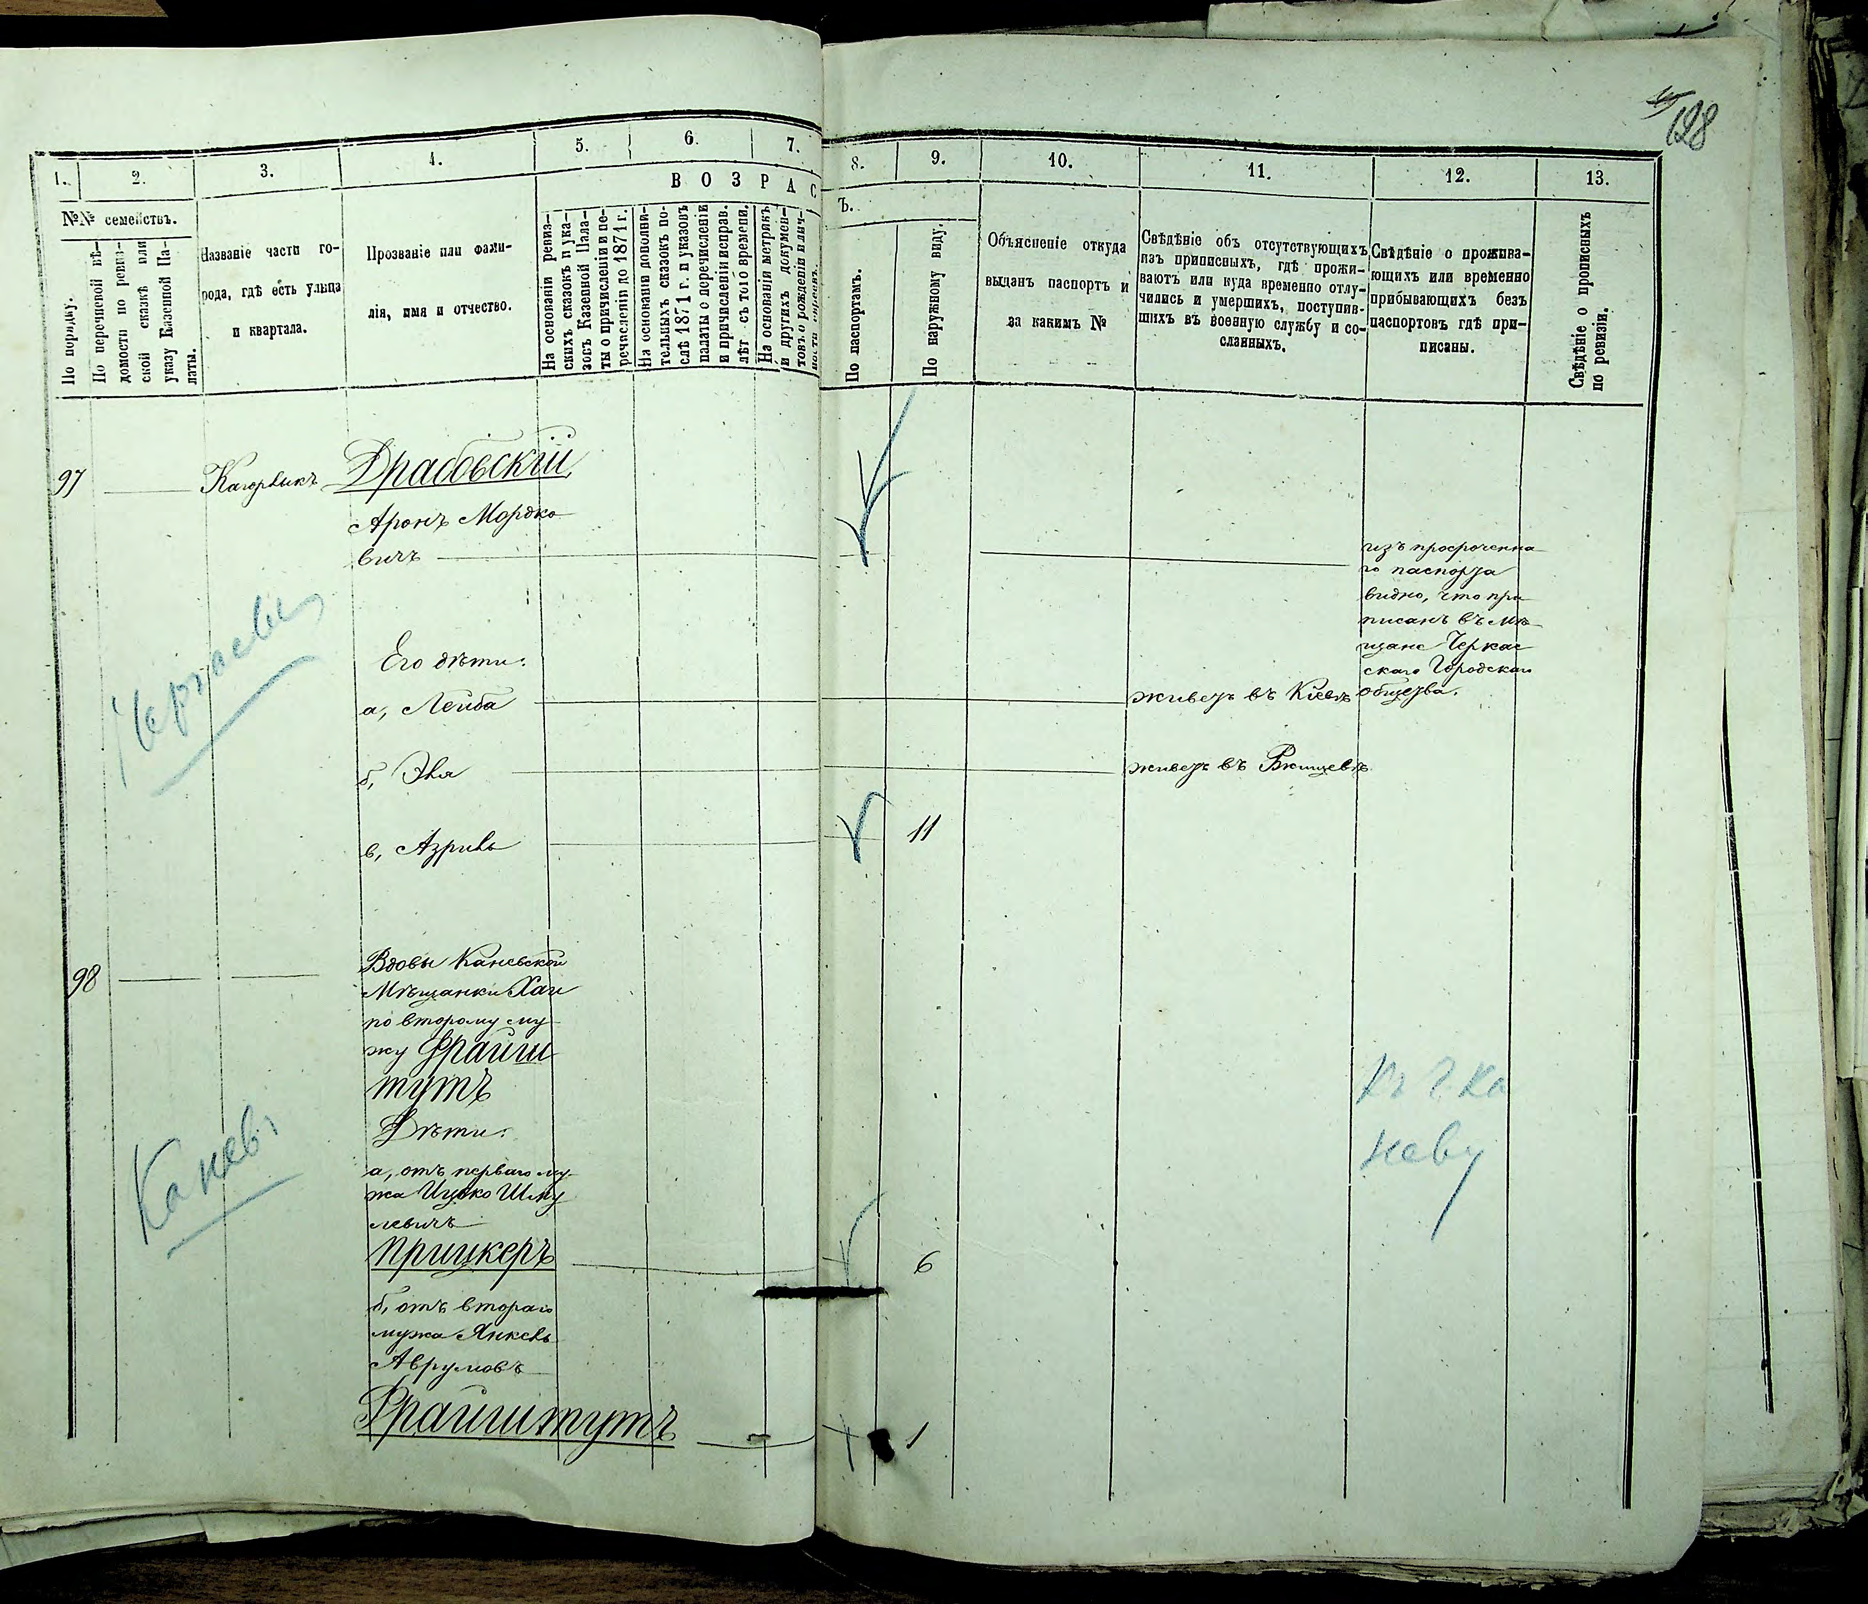 128
1.
2.
3.
4.
5.
6.
7.
8.
9.
10.
11.
12.
13.
ВОЗРАС
Ъ.
№№ семействъ.
По порядку.
По перечневой вѣ-
домости по ревиз-
ской сказкѣ или
указу Казенной Па-
латы.
Названіе части го-
рода, гдѣ есть улица
и квартала.
Прозваніе или фами-
лія, имя и отчество.
На основаніи ревиз-
скихъ сказокъ и ука-
зовъ Казенной Пала-
ты о причисленіи и пе-
речисленіи до 1871 г.
На основаніи дополни-
тельныхъ сказокъ по-
слѣ 1871 г. и указовъ
палаты о перечисленіи
и причисленіи исправ.
лѣт съ того времени.
На основаніи метрикъ
и другихъ докумен-
товъ о рожденіи и лич-
По паспортамъ.
По наружному виду.
Объясненіе откуда
выданъ паспортъ и
за какимъ №
Свѣдѣніе объ отсутствующихъ
изъ приписныхъ, гдѣ прожи-
ваютъ или куда временно отлу-
чились и умершихъ, поступив-
шихъ въ военную службу и со-
сланныхъ.
Свѣдѣніе о прожива-
ющихъ или временно
прибывающихъ безъ
паспортовъ гдѣ при-
писаны.
Свѣдѣніе о прописныхъ
по ревизіи.
97
Кагарлыкъ
Драбовскій
Аронъ Мордко
вичъ
изъ просроченна
го паспорта
видно, что при
писанъ въ мѣ
щане Черкас
скаго Городскаго
общества.
Черкассы
Его дѣти:
а, Лейба
живетъ въ Кіевѣ
б, Эля
живетъ въ Ржищевѣ
в, Азриль
11
98
Вдовы Каневской
Мѣщанки Хаи
по второму му
жу Фрайш
тутъ
Дѣти:
а, отъ перваго му
жа Ицко Шму
левичъ
Прицкеръ
6
б, отъ втораго
мужа Янкель
Аврумовъ
Фрайштутъ
1
Каневъ
Къ г Ка
неву